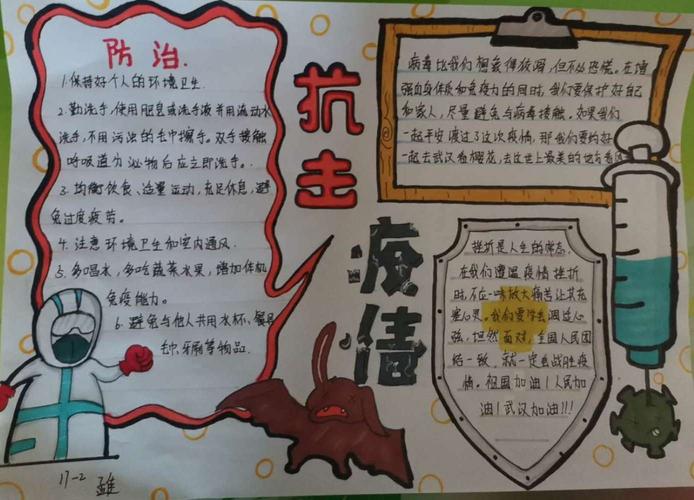 防治.
1.保持好个人的环境卫生
2.勤洗手,使用肥皂或洗手液并用流动水
洗手,不用污浊的毛巾擦手。双手接触
呼吸道分泌物后应立即洗手。
3.均衡饮食、适量运动,充足休息,避
免过度疲劳。
4.注意环境卫生和室内通风.
5.多喝水,多吃蔬菜水果,增加体机
免疫能力。
6.避免与他人共用水杯、餐具
毛巾、牙刷等物品.
抗击
疫情
病毒比我们想象得狡猾,但不必恐慌。在增
强自身体质和免疫力的同时,我们要保护好自己
和家人,尽量避免与病毒接触。如果我们
一起平安度过了这次疫情,那我们要约好
一起去武汉看樱花,去这世上最美的地方看
挫折是人生的常态.
在我们遭遇疫情挫折
时,不应一味放大痛苦让其充
塞心灵。我们要学会调适心
强,坦然面对,全国人民团
结一致,就一定会战胜疫
情。祖国加油!人民加
油!武汉加油!!!
17-2